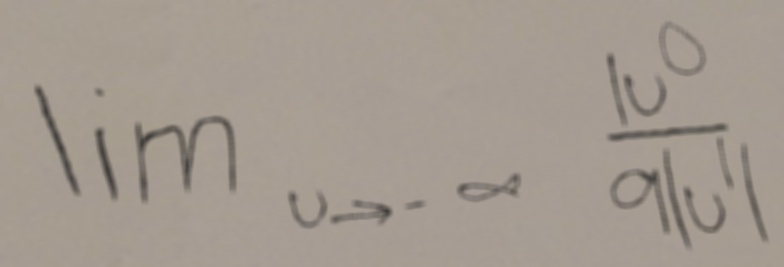 lim u→-∞ 1u^0/9|1u^1|